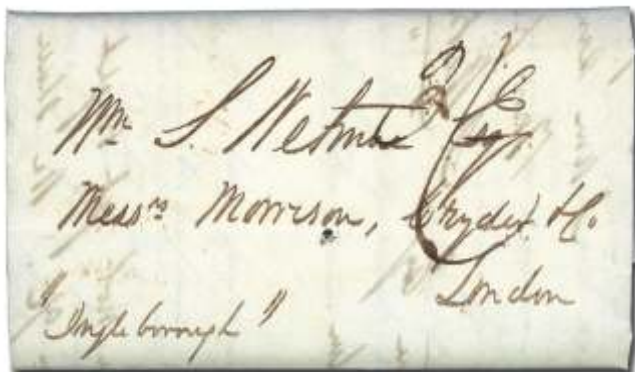 Wm S. Wetmore Esq.
Messrs Morrison, Cryder & Co.
London
"Ingleborough"